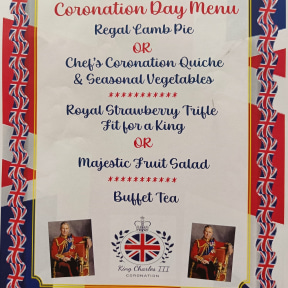 Coronation Day Menu
Regal Lamb Pie
OR
Chef's Coronation Quiche
& Seasonal Vegetables
***********
Royal Strawberry Trifle
Fit for a King
OR
Majestic Fruit Salad
***********
Buffet Tea
King Charles III
CORONATION